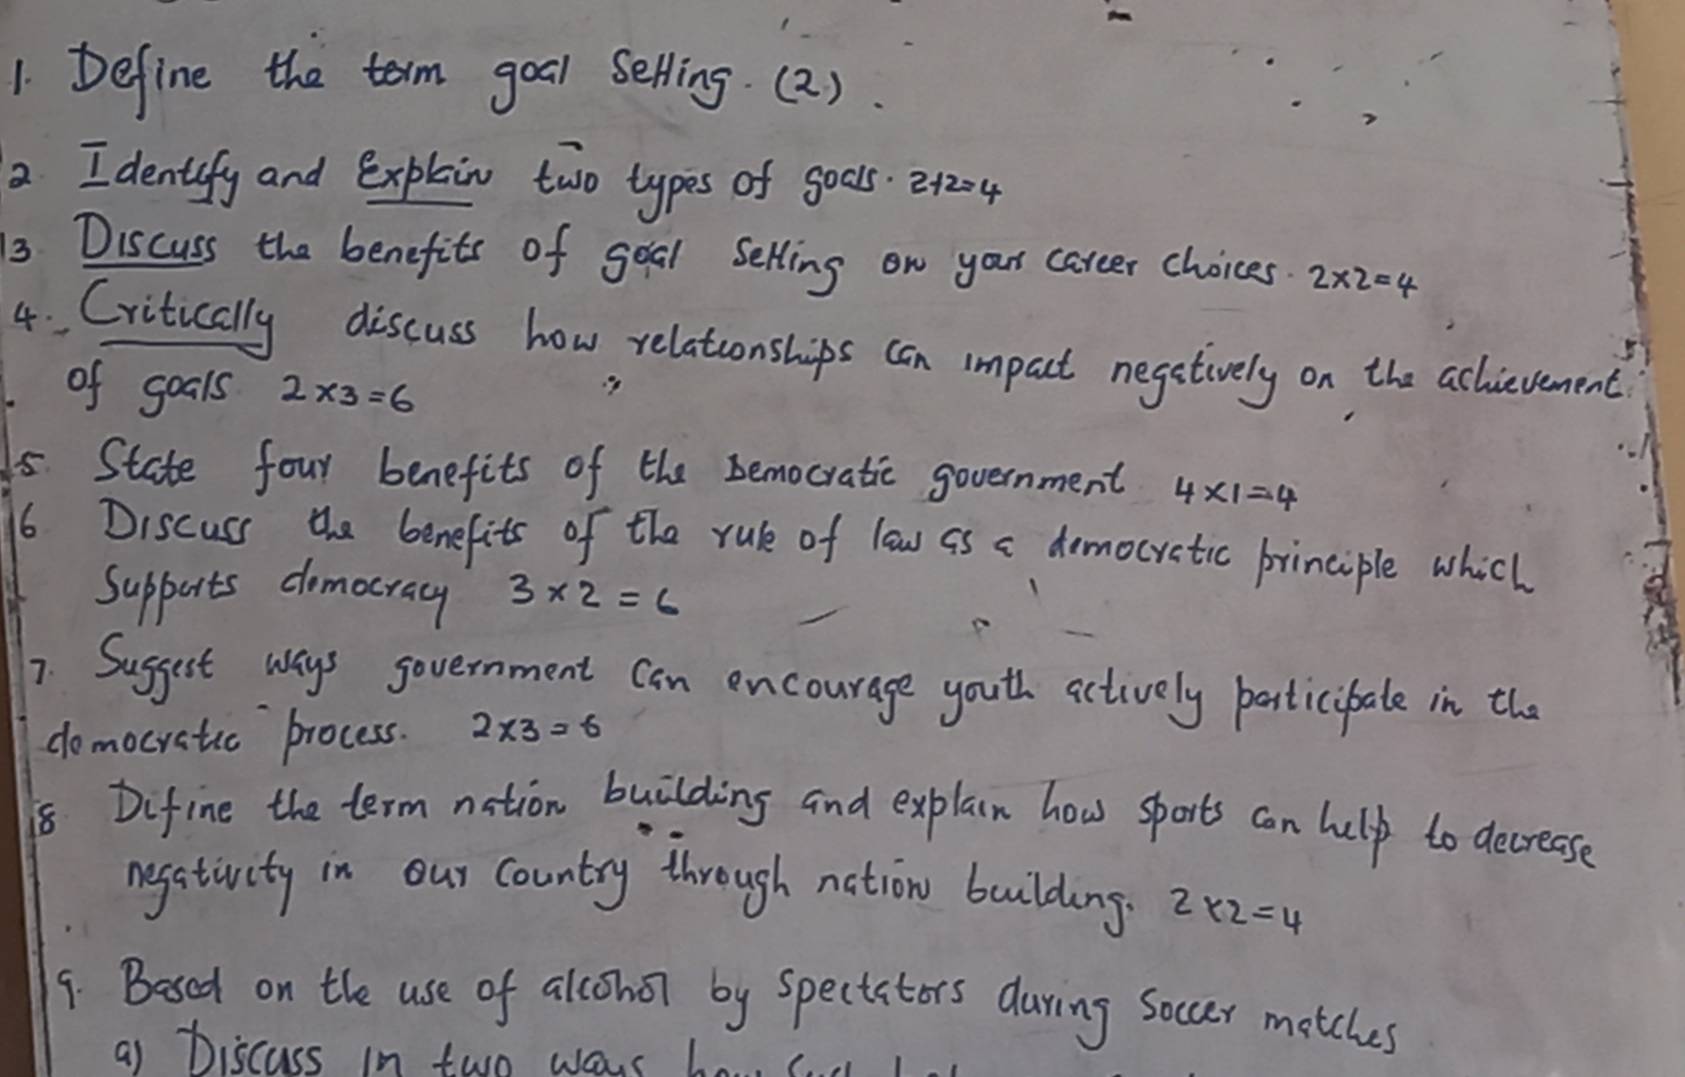 1. Define the term goal setting. (2).
2. Identify and Explain two types of goals. 2+2=4
3. Discuss the benefits of goal setting on your career choices. 2x2=4
4. Critically discuss how relationships can impact negatively on the achievement
of goals. 2x3=6
5. State four benefits of the Democratic government 4x1=4
6 Discuss the benefits of the rule of law as a democratic principle which
Supports democracy 3x2=6
7. Suggest ways government can encourage youth actively participate in the
democratic process. 2x3=6
8 Define the term nation building and explain how sports can help to decrease
negativity in our country through nation building. 2x2=4
9. Based on the use of alcohol by spectators during soccer matches
a) Discuss in two ways how such